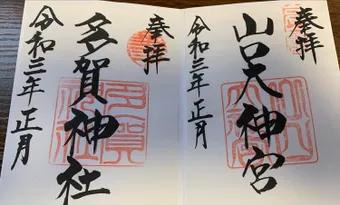 奉拝
山口大神宮
令和三年正月
奉拝
多賀神社
令和三年正月
多賀